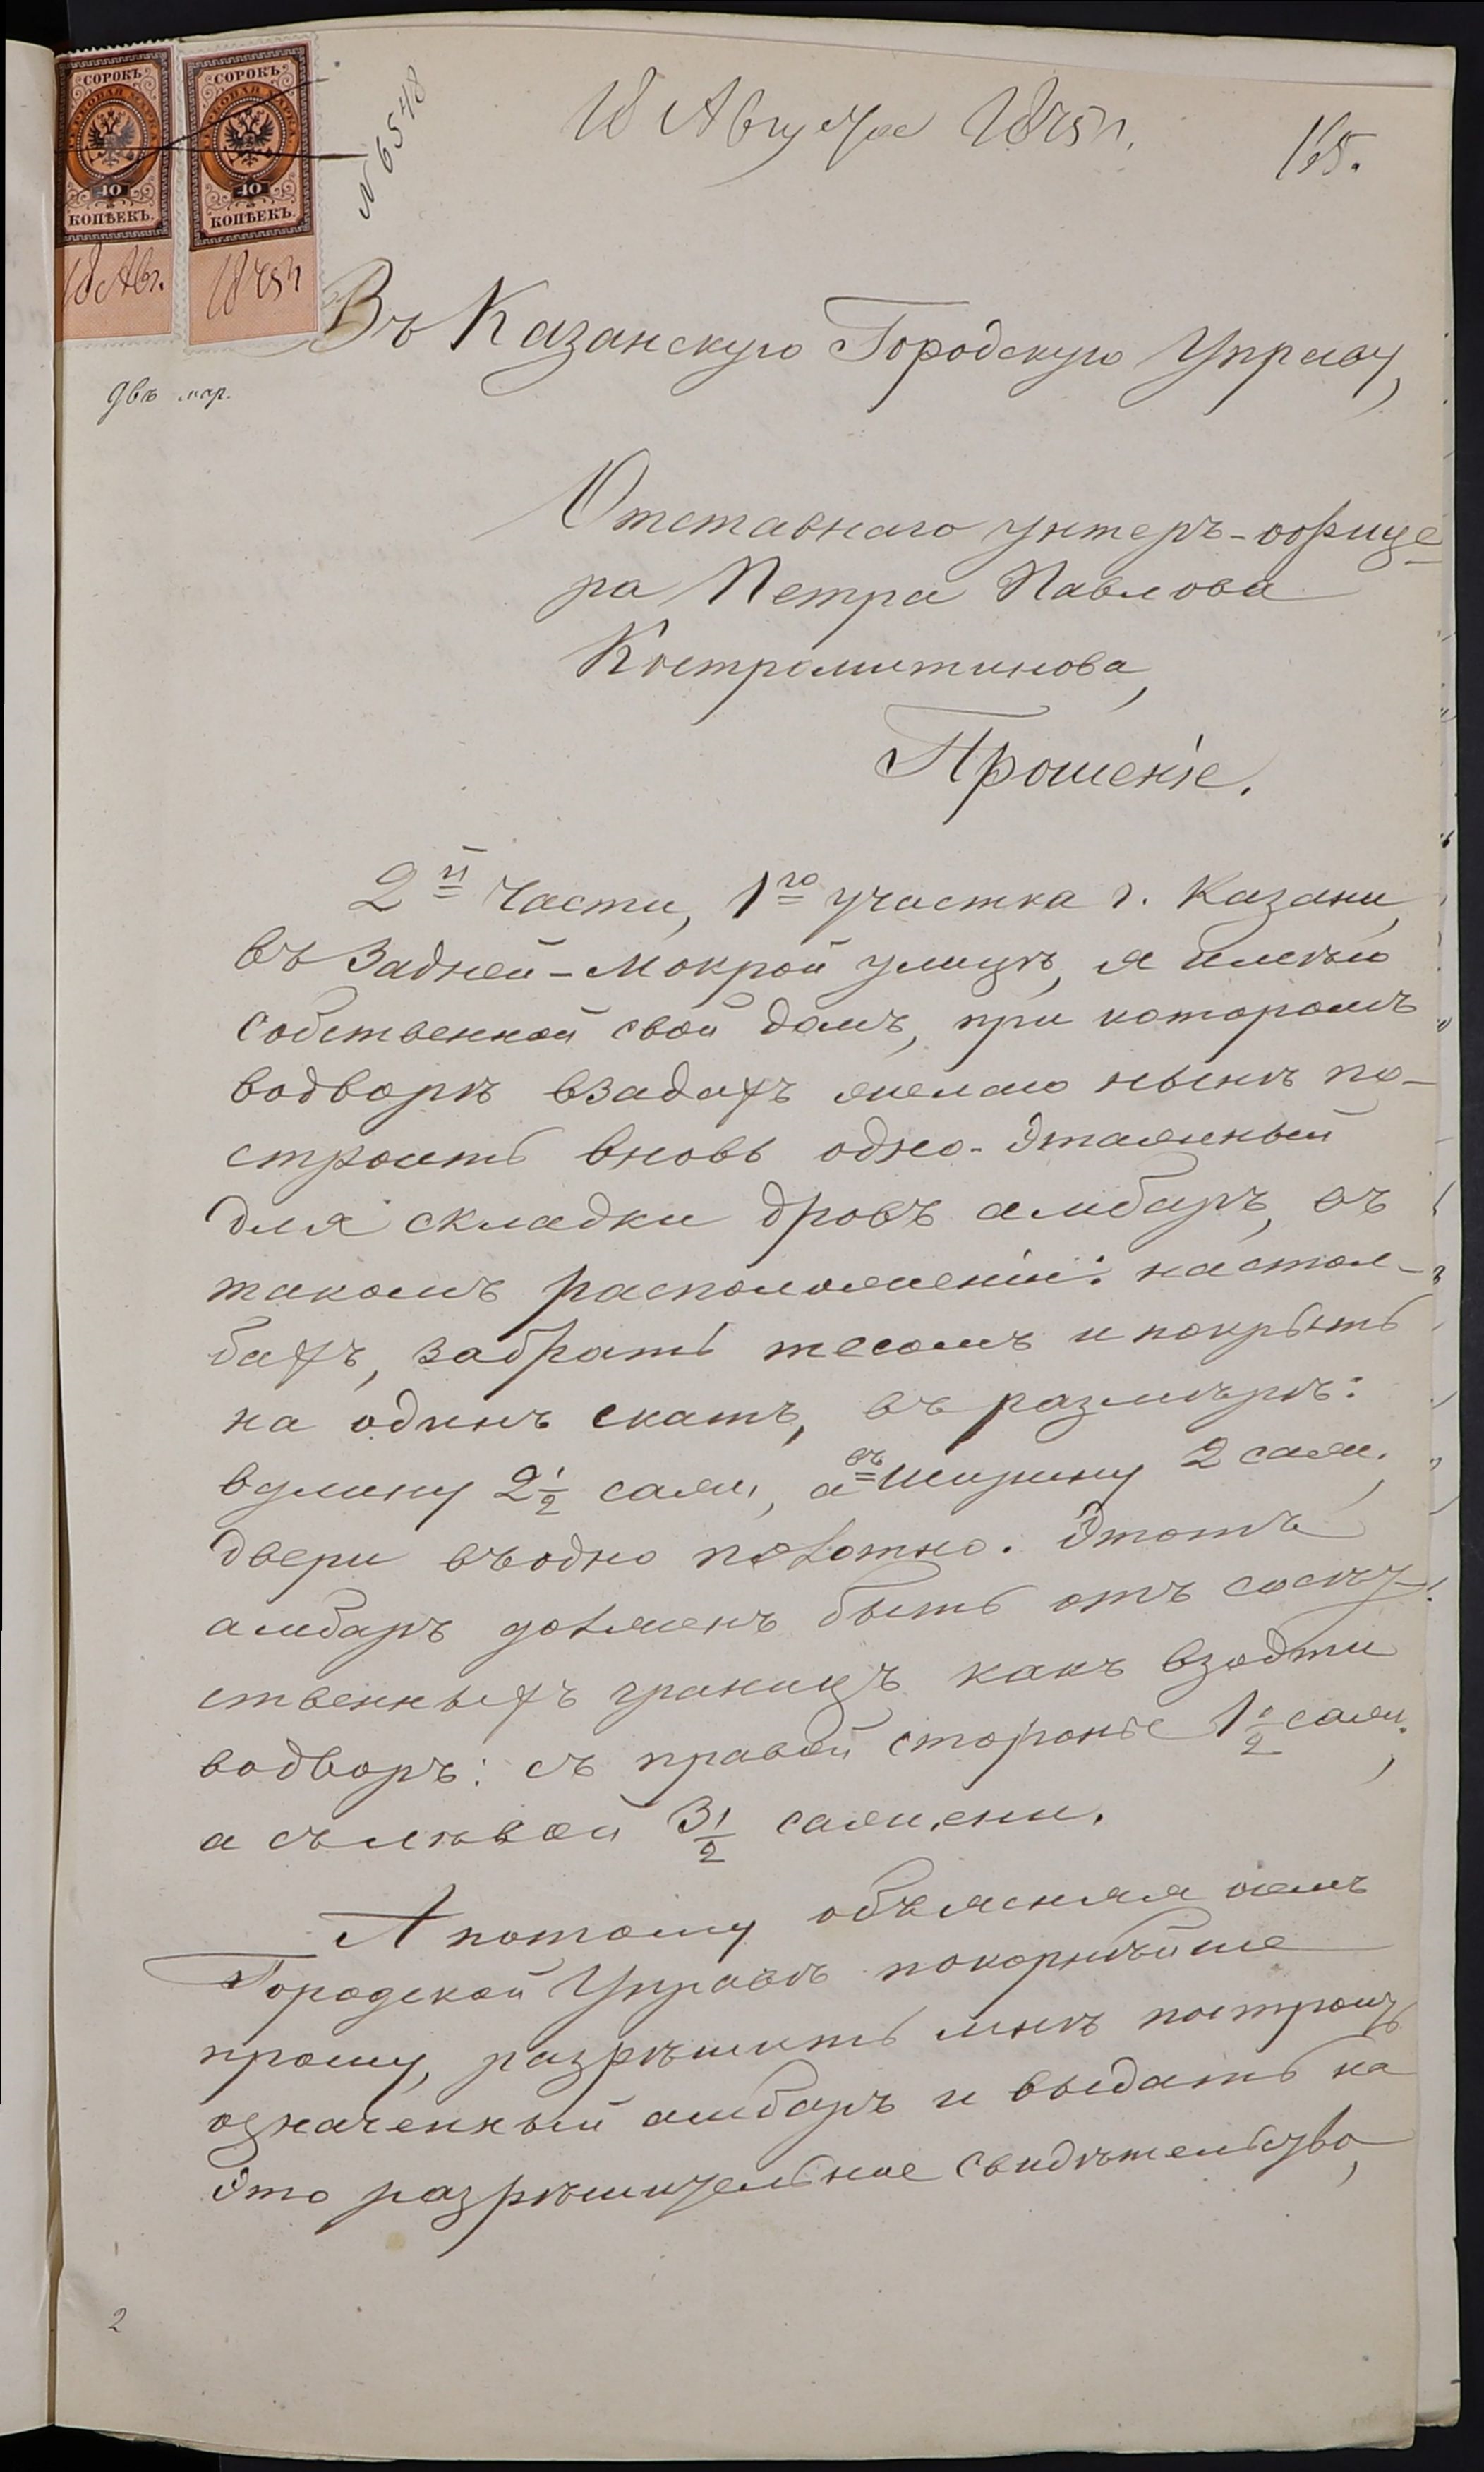 СОРОКЪ
СОРОКЪ
40
40
КОПѢЕКЪ.
КОПѢЕКЪ.
18 Авг.
1875 г
двѣ мар.
N 6548
18 Августа 1875 г.
165.
Въ Казанскую Городскую Управу,
Отставнаго унтеръ-офице-
ра Петра Павлова
Костромитинова,
Прошеніе.
2й Части, 1го участка г. Казани,
въ Задней-Мокрой улицѣ, я имѣю
собственной свой домъ, при которомъ
водворѣ взадахъ желаю нынѣ по-
строить вновь одно-этажный
для складки дровъ амбаръ, въ
такомъ расположеніи: настол-
бахъ, забрать тесомъ и покрыть
на одинъ скатъ, въ размѣрѣ:
вдлину 2 1/2 саж., а въ ширину 2 саж.,
двери въодно полотно. Этотъ
амбаръ долженъ быть отъ сосѣд-
ственныхъ границъ какъ взодти
водворъ: съ правой стороны 1 1/2 саж.,
а съ лѣвой 3 1/2 сажени.
А потому объясняя о семъ
Городской Управѣ покорнѣйше
прошу, разрѣшить мнѣ построить
означенный амбаръ и выдать на
это разрѣшительное свидѣтельство,
2